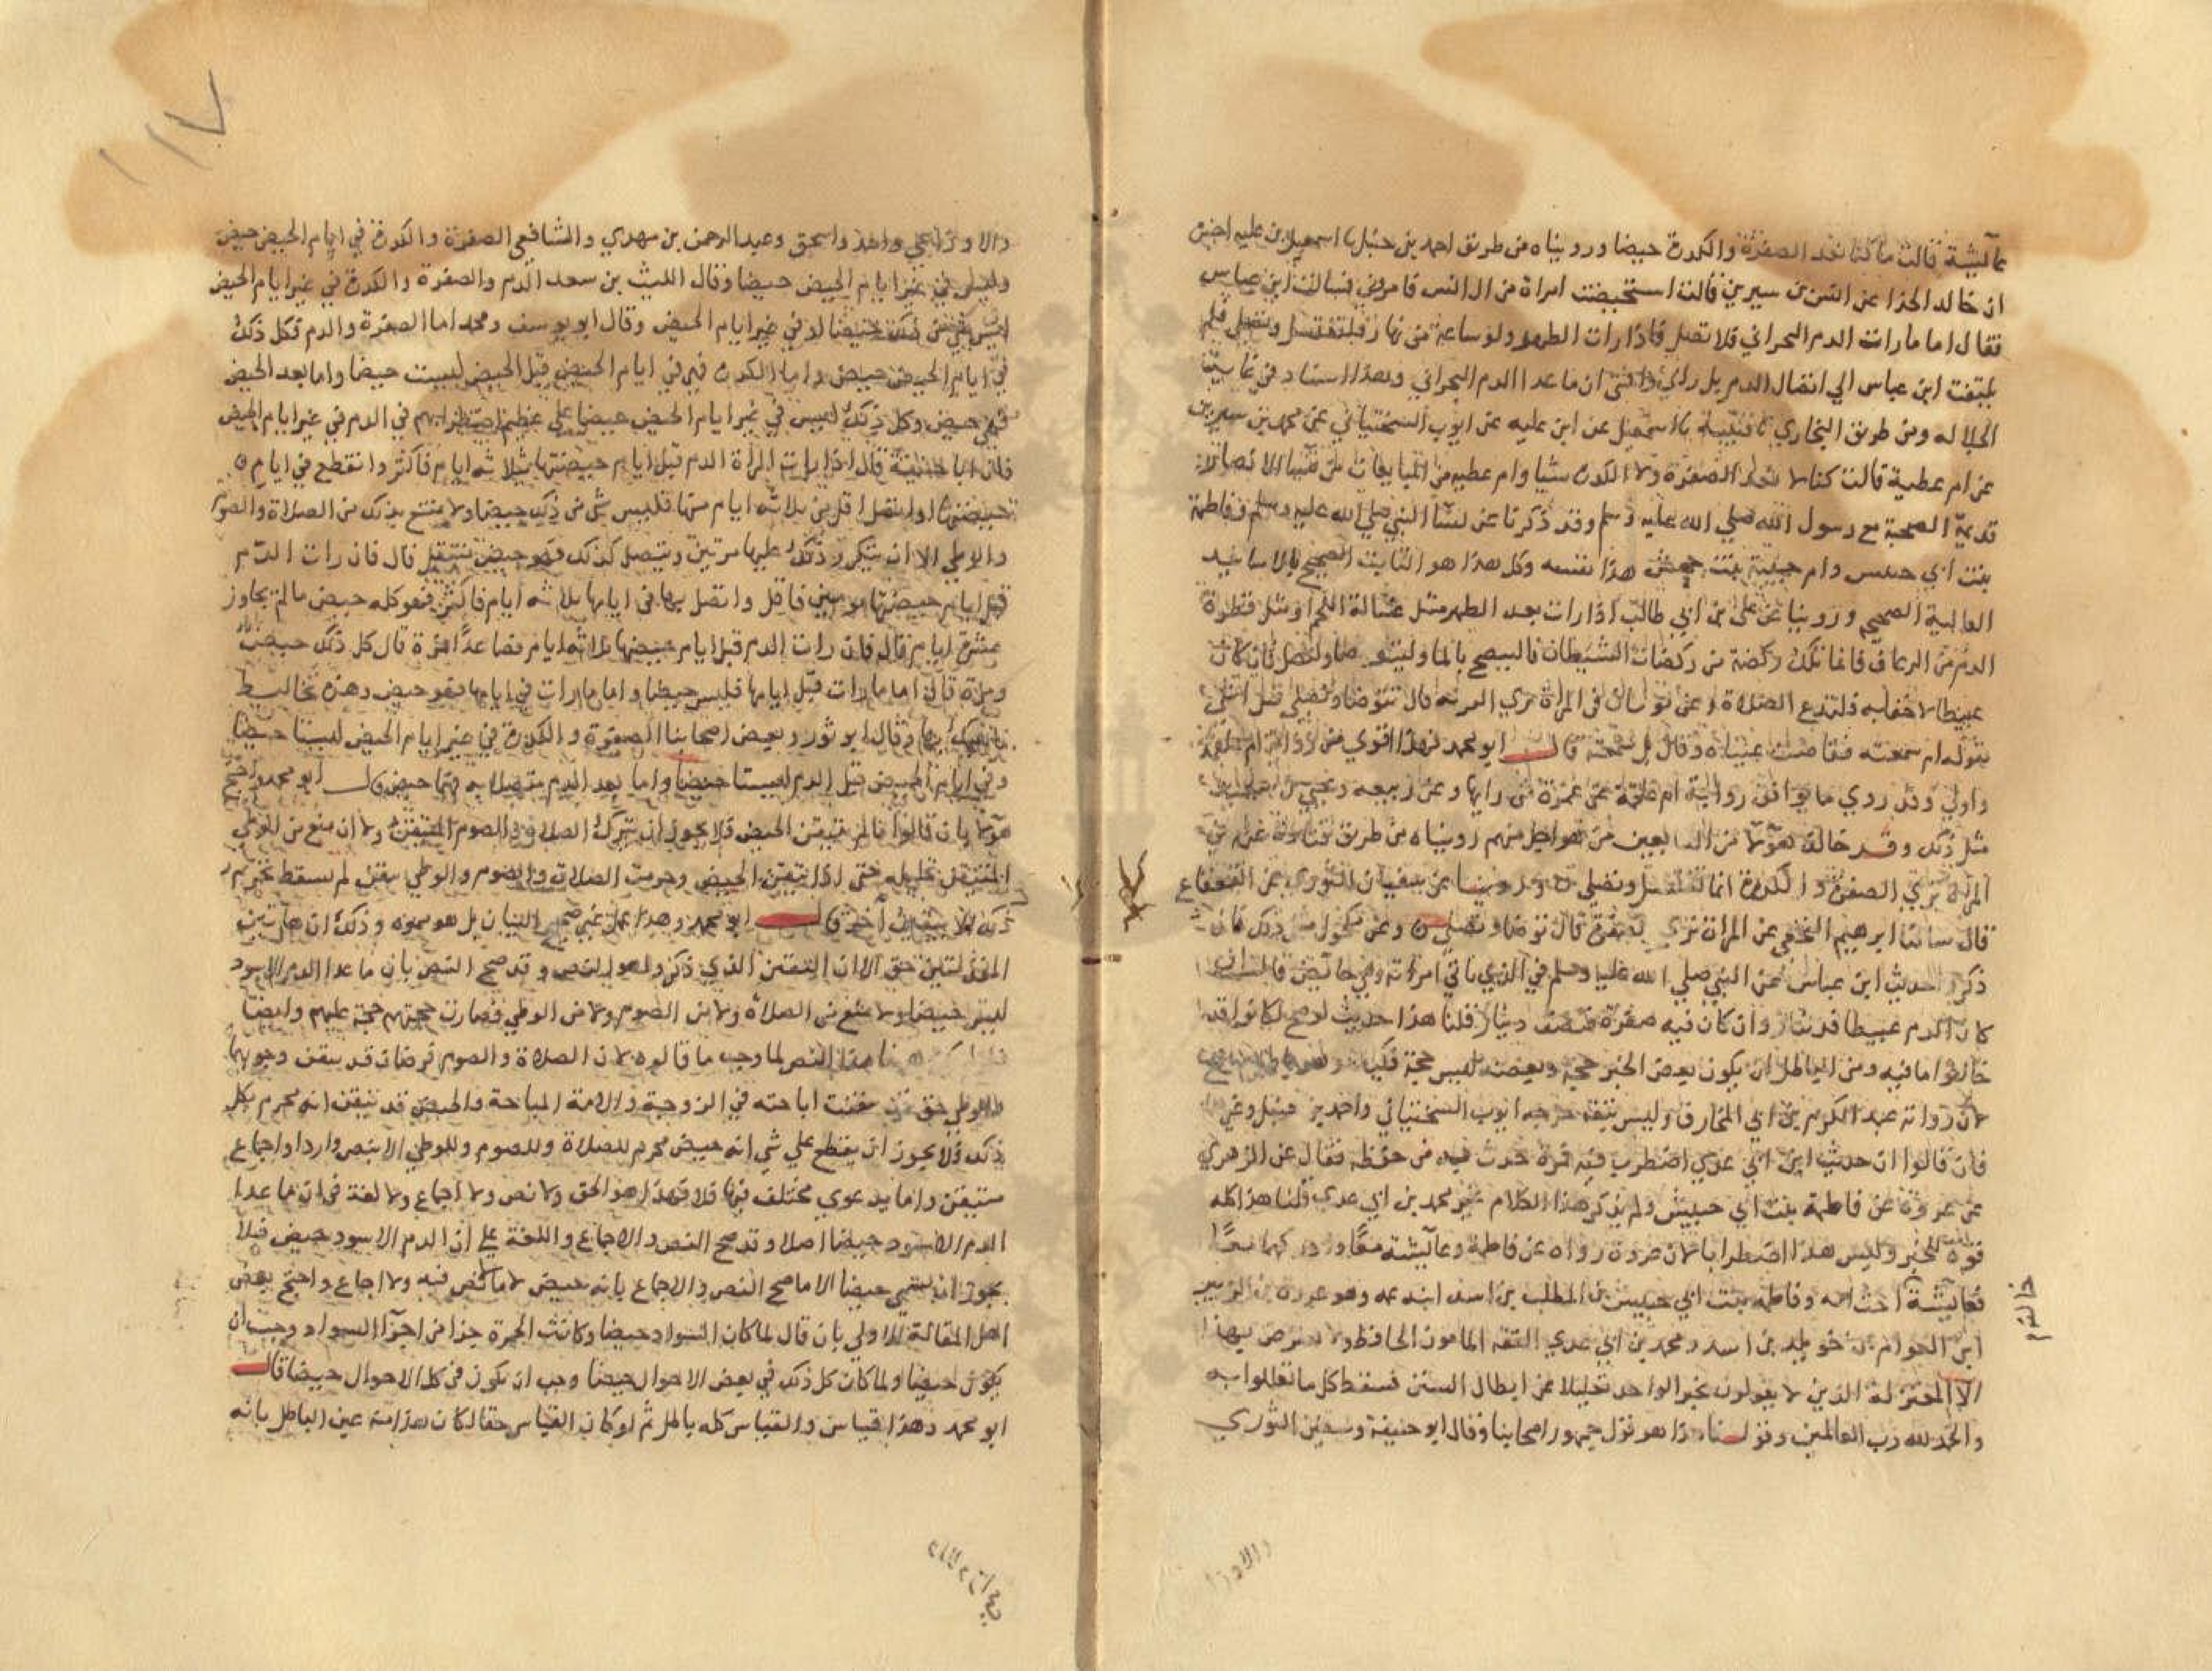 عآئشة قالت ما كنا نعد الصفرة والكدرة حيضا ورويناه من طريق احمد بن حنبل نا اسمعيل بن عليه اخبرنا
ان خالد الحذا عن انس بن سيرين قالت استحيضت امراة من ال انس فامروني فسالت ابن عباس
فقال اما ما رات الدم البحراني فلا تصل فاذا رات الطهر ولو ساعة من نهار فلتغتسل وتصلي فلم
يلتفت ابن عباس الي اتصال الدم بل راي وافتي ان ما عدا الدم البحراني وهذا اسناد في غاية
الجلاله ومن طريق البخاري نا قتيبة نا اسمعيل عن ابن عليه عن ايوب السختياني عن محمد بن سيرين
عن ام عطية قالت كنا لا نعد الصفرة ولا الكدرة شيا وام عطيه من المبايعات من نسا الانصار
قديمة الصحبة مع رسول الله صلي الله عليه وسلم وقد ذكرنا عن نسا النبي صلي الله عليه وسلم وفاطمة
بنت ابي حبيش وام حبيبة بنت جحش هذا نفسه وكل هذا هو الثابت الصحيح بالاسانيد
العالية الصحيح وروينا عن علي بن ابي طالب اذا رات بعد الطهر مثل غسالة اللحم او مثل قطرة
الدم من الرعاف فانما تلك ركضة من ركضات الشيطان فالينضح بالما وليتوضا وليصل فان كان
عبيطا لا خفا به فلتدع الصلاة وعن ثوبان في المراة تري البرية قال تتوضا وتصلي قيل اشي
بقوله ام سمعته ففاضت عيناه وقال بل سمعته قال ابو محمد فهذا اقوي من رواية ام علقمة
واولي وقد روي ما يوافق رواية ام علقمة عن عمرة من رايها وعن ربيعه ويحيي بن سعيد
مثل ذلك وقد خالف هؤلا من التابعين من هو اجل منهم رويناه من طريق قتادة عن
المراة تري الصفرة والكدرة انها تغتسل وتصلي وروينا عن سفيان الثوري عن القعقاع
قال سالنا ابرهيم النخعي عن المراة تري الصفرة قال توضا وتصلي وعن مكحول مثل ذلك فان
ذكروا حديث ابن عباس عن النبي صلي الله عليه وسلم في الذي ياتي امراته وهي حائض فان
كان الدم عبيطا فدينار وان كان فيه صفرة فنصف دينار قلنا هذا حديث لو صح لكانوا قد
خالفوا ما فيه ومن الباطل ان يكون بعض الخبر حجة وبعضه ليس حجة فكيف وهو باطل لا يصح
لان رواته عبد الكريم بن ابي المخارق وليس بثقة جرحه ايوب السختياني واحمد بن حنبل وغي
فان قالوا ان حديث ابن ابي عدي اضطرب فيه فمرة حدث فيه من حفظه فقال عن الزهري
عن عروة عن فاطمة بنت ابي حبيش ولم يذكر هذا الكلام غير محمد بن ابي عدي قلنا هذا كله
قوة للخبر وليس هذا اضطرابا لان عروة رواه عن فاطمة وعآئشة معا وادركهما معا
فعآئشة اخت امه وفاطمه بنت ابي حبيش بن المطلب بن اسد ابنة عمه وهو عروة بن الزبير
ابن العوام بن خويلد بن اسد ومحمد بن ابي عدي الثقه المامون الحافظ ولا يعترض بهذا
الا المعتزلة الذين لا يقولون بخبر الواحد تحيلا من ابطال السنن فسقط كل ما تعللوا به
والحمد لله رب العالمين وقولنا هذا هو قول جمهور اصحابنا وقال ابو حنيفة وسفين الثوري
والاوزا
١١٧
والاوزاعي واحمد واسحق وعبد الرحمن بن مهدي والشافعي الصفرة والكدرة في ايام الحيض حيض
وليسا في غير ايام الحيض حيضا وقال الليث بن سعد الدم والصفرة والكدرة في غير ايام الحيض
ليس شي من ذلك حيضا في غير ايام الحيض وقال ابو يوسف ومحمد اما الصفرة والدم فكل ذلك
في ايام الحيض حيض واما الكدرة فهي في ايام الحيض قبل الحيض ليست حيضا واما بعد الحيض
فهي حيض وكل ذلك ليس في غير ايام الحيض حيضا علي عظيم اضطرابهم في الدم في غير ايام الحيض
فان ابا حنيفة قال اذا رات المراة الدم قبل ايام حيضتها بثلاثه ايام فاكثر وانقطع في ايام
حيضتها او اتصل اقل من ثلاثه ايام منها فليس شي من ذلك حيضا ولا تمتنع بذلك من الصلاة والصوم
والوطي الا ان يتكرر ذلك عليها مرتين ويتصل كذلك فهو حيض منتقل قال فان رات الدم
قبل ايام حيضتها بيومين فاقل واتصل بها في ايامها ثلاثه ايام فاكثر فهو كله حيض ما لم يجاوز
عشرة ايام قال فان رات الدم قبل ايام حيضها بثلاثه ايام فصاعدا فمرة قال كل ذلك حيض
ومرة قال اما ما رات قبل ايامها فليس حيضا واما ما رات في ايامها فهو حيض وهذه تخاليط
ناهيك بها وقال ابو ثور وبعض اصحابنا الصفرة والكدرة في غير ايام الحيض ليستا حيضا
وفي ايام الحيض قبل الدم ليستا حيضا واما بعد الدم متصلا به فهما حيض قال ابو محمد واحتج
هؤلا بان قالوا ما لم يتيقن الحيض فلا يجوز ان تترك الصلاة والصوم المتيقن ولا ان يمنع من الوطي
المتيقن تحليله حتي اذا تيقن الحيض وحرمت الصلاة والصوم والوطي بيقين لم يسقط تحريم
ذلك الا بيقين اخر قال ابو محمد وهذا عمل غير صحيح البيان بل هو مموه وذلك ان هاتين
المقدمتين حق الا ان اليقين الذي ذكروا هو النص وقد صح النص بان ما عدا الدم الاسود
ليس حيضا ولا يمنع من الصلاة ولا من الصوم ولا من الوطي فصارت حجتهم حجة عليهم وايضا
فلو لم يكن هاهنا هذا النص لما وجب ما قالوه لان الصلاة والصوم فرضان قد تيقن وجوبهما
والوطي حق قد تيقنت اباحته في الزوجة والامة المباحة والحيض قد تيقن انه محرم بكل
ذلك ولا يجوز ان يقطع علي شي انه حيض محرم للصلاة وللصوم وللوطي الا بنص وارد او اجماع
متيقن واما بدعوي مختلف فيها فلا فهذا هو الحق ولا نص ولا اجماع ولا لغة في ان ما عدا
الدم الاسود حيضا اصلا وقد صح النص والاجماع واللغة علي ان الدم الاسود حيض فلا
يجوز ان يسمي حيضا الا ما صح النص والاجماع بانه حيض لا ما لا نص فيه ولا اجماع واحتج بعض
اهل المقالة الاولي بان قال لما كان السواد حيضا وكانت الحمرة جزا من اجزآ السواد وجب ان
يكون حيضا ولما كان كل ذلك في بعض الاحوال حيضا وجب ان يكون في كل الاحوال حيضا قال
ابو محمد وهذا قياس والقياس كله باطل ثم لو كان القياس حقا لكان هذا منه عين الباطل بانه